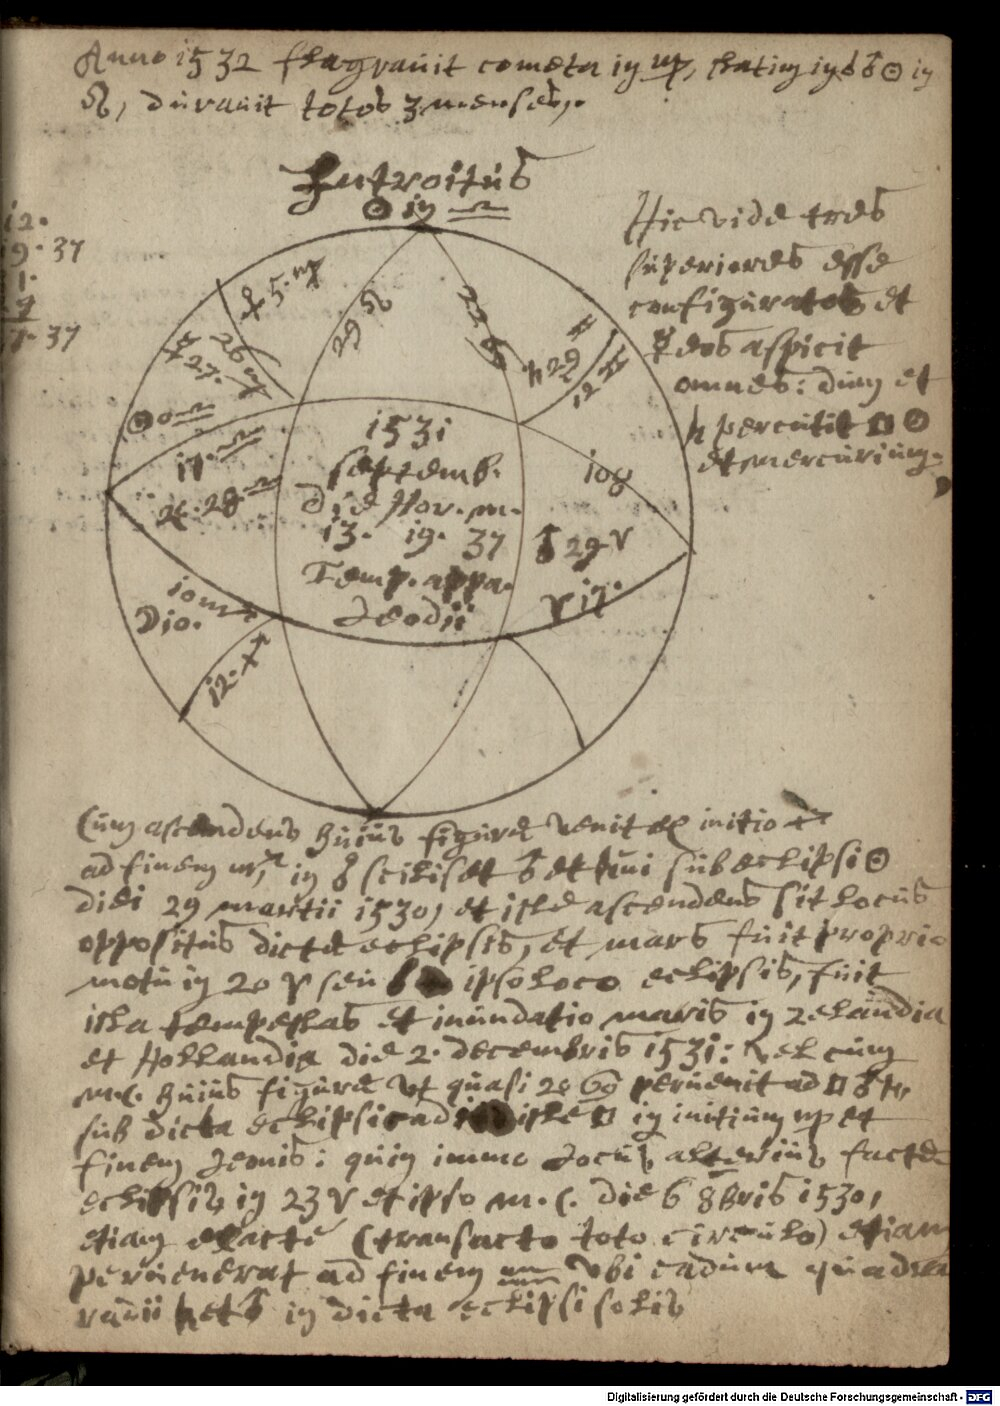 Anno 1532 flagravit cometa in ♍, statim in ☍ ♂ ☉ in
♌, duravit totos 3 menses.
Introitus
☉ in ♎
12.
9. 37
1.
7. 37
Hic vide tres
superiores esse
configuratos et
☿ eos aspicit
omnes: dum et
♄ percutit □ ☉
et mercurium.
♀ 5. ♍
29 ♌
22 ♋
26 ♍
☿ 27. ♍
♄ 29 ♊
12 ♊
☉ 0 ♎
17. ♎
♃. 28. ♎
1531
septemb.
die Hor. m.
13. 19. 37
Temp. appa.
Leodii
10 ♉
♂ 29 ♈
♈ 17.
10 ♏
☽ 10.
12. ♐
Cum ascendens huius figurę venit ex initio ♎
ad finem ♍, in ☍ scilicet ♂ et sui sub eclipsi ☉
diei 29 martii 1530, et iste ascendens sit locus
oppositus dictę eclipsis, et mars fuit proprio
motu in 20 ♈ seu ipso loco eclipsis, fuit
ista tempestas et inundatio maris in Zelandia
et Hollandia die 2. decembris 1531: vel cum
m.c. huius figurę ut quasi 20 ♋ pervenit ad □ ♂ ♄,
sub dicta eclipsi iste □ in initium ♍ et
finem Leonis: quin immo Locus alterius factę
eclipsis in 23 ♈ et ipso m.c. die 6 8bris 1530,
etiam exacte (transacto toto circulo) etiam
pervenerat ad finem ♒ ubi cadunt quadra
radii ♄ et ♂ in dicta eclipsi solis
Digitalisierung gefördert durch die Deutsche Forschungsgemeinschaft - DFG